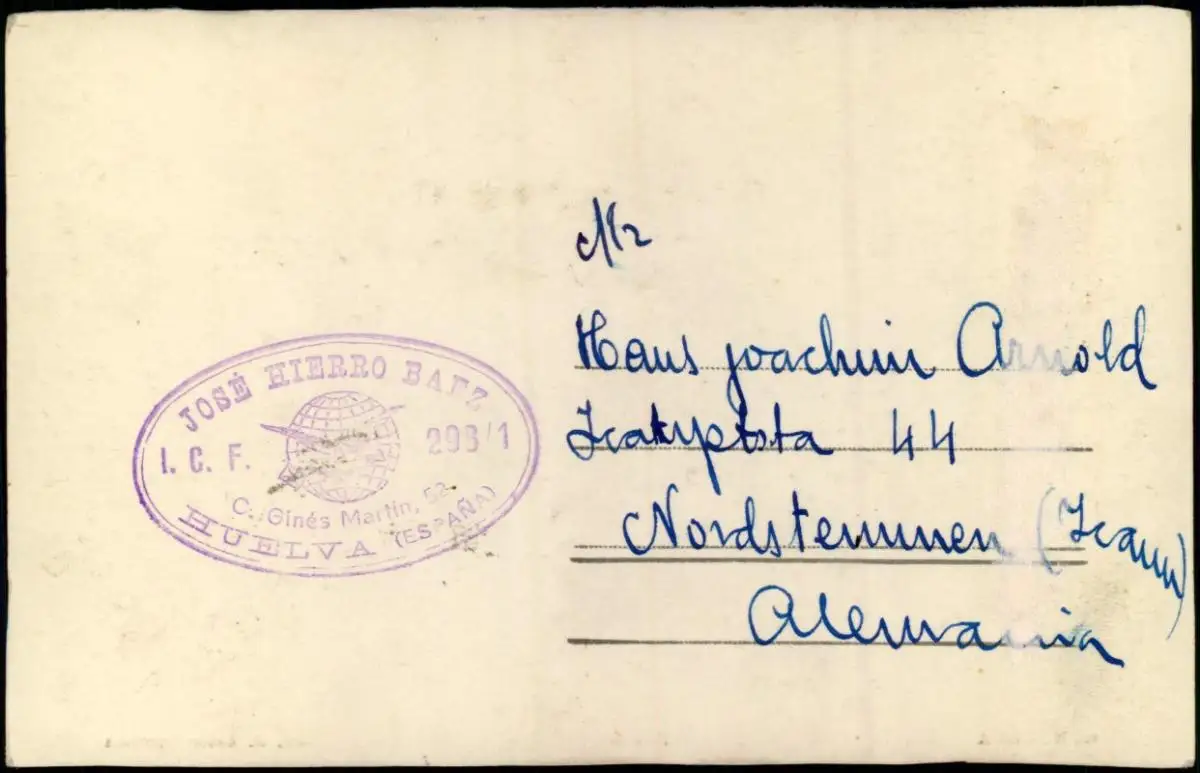 JOSÉ HIERRO BAEZ
I. C. F. 298/1
C. Ginés Martín, 52
HUELVA (ESPAÑA)
Mr
Hans Joachim Arnold
44
Nordstemmen
Alemania